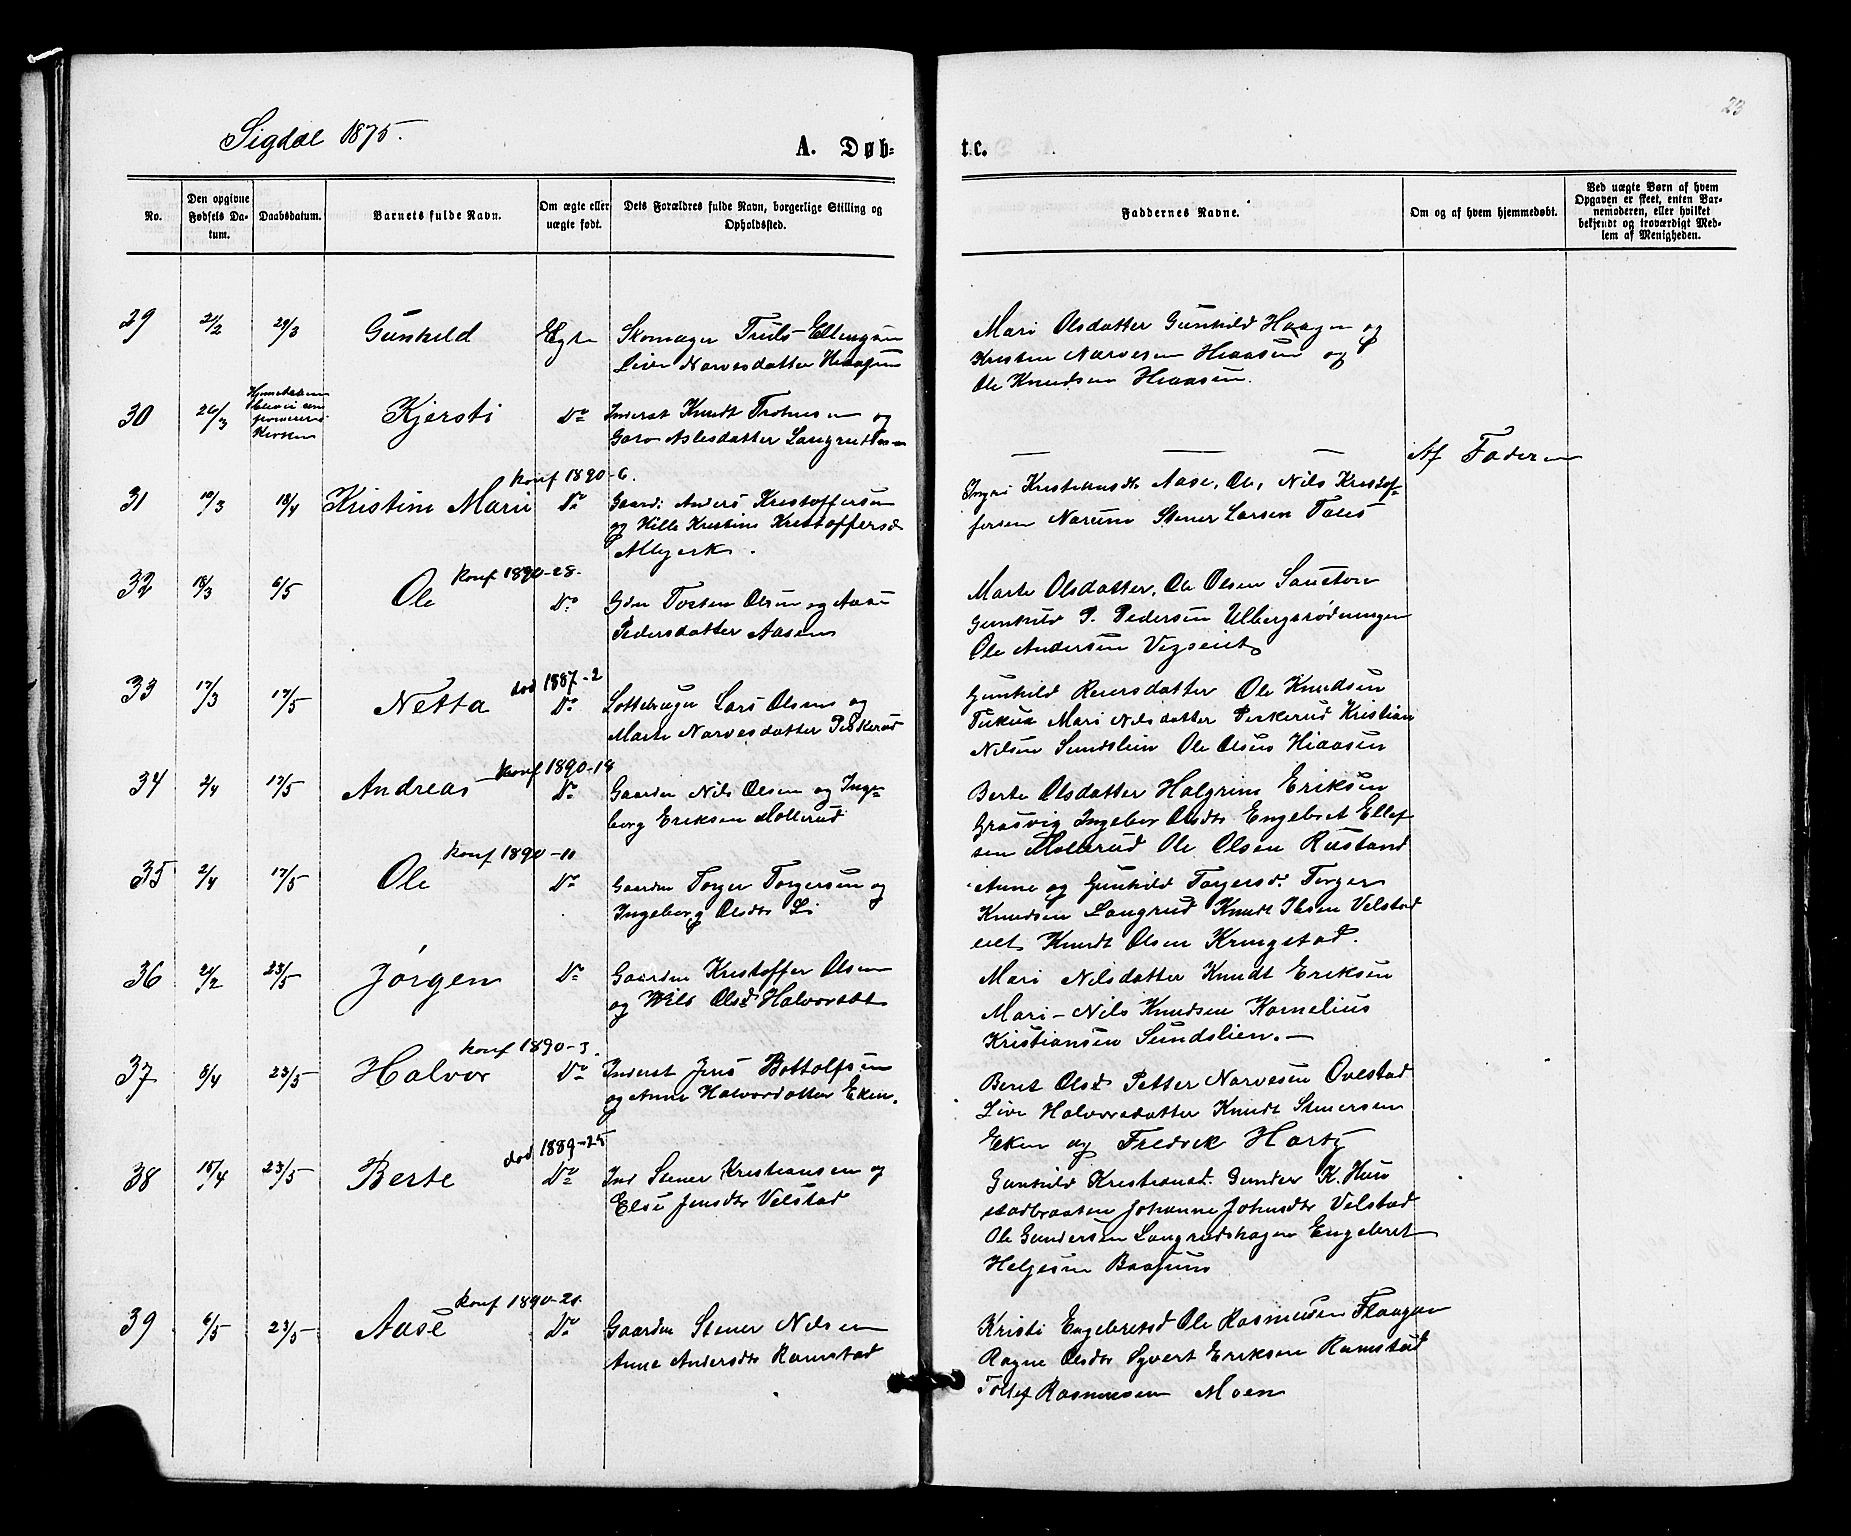 23
Sigdal 1875.
A. Døb-
te.
No.
Den opgivne Fødsels Da-tum.
Daabsdatum.
Barnets fulde Navn.
Om ægte eller uægte født.
Dets Forældres fulde Navn, borgerlige Stilling og Opholdssted.
Faddernes Navne.
Om og af hvem hjemmedøbt.
Ved uægte Børn af hvem Opgaven er skeet, enten Bar-nemoderen, eller hvilket bekjendt og troværdigt Med-lem af Menigheden.
29 21/2 29/3 Gunhild Egte Skomager Truls Ellingsen
Live Narvesdatter Hiaasen
Mari Olsdatter Gunhild Haagen og
Kristen Narvesen Hiaasen og
Ole Knudsen Hiaasen.
30 26/3 Kjersti Do Inderst Knudt
og
Goro Aslesdatter
Af Faderen
31 19/3 18/4 Kristine Marie konf 1890-6. Do Gaard: Anders Kristoffersen
og Hille Kristine Kristoffersd
Ingri Kristiansdt. Aase, Ole, Nils Kristof-
fersen Narum Stener Larsen
32 18/3 6/5 Ole konf 1890-28. Do Gdr Torsten Olsen og Aase
Pedersdatter Aasen
Marte Olsdatter, Ole Olsen
Gunhild P. Pedersen Ulbergsrødningen
Ole Andersen
33 17/3 17/5 Netta død 1887-2 Do Lars Olsen og
Marte Narvesdatter Peskerud
Gunhild Reiersdatter Ole Knudsen
Mari Nilsdatter Peskerud Kristian
Nilsen Sundslien Ole Olsen Hiaasen
34 2/4 17/5 Andreas konf 1890-18 Do Gaardm Nils Olsen og Inge-
borg Eriksen Mollerud
Berte Olsdatter Halgrim Eriksen
Grasvig Ingebor Olsdtr Engebret Ellef
sen Mollerud Ole Olsen Rustand
35 2/4 17/5 Ole konf 1890-10 Do Gaardm Torger Torgersen og
Ingeborg Olsdtr Li
Anne og Gunhild Torgersd. Torger
Knudsen Langrud Knudt Ibsen Velstad
eiet Knudt Olsen Kringstad.
36 21/2 23/5 Jørgen Do Gaardm Kristoffer Olsen
og
Mari Nilsdatter Knudt Eriksen
Mari - Nils Knudsen Kornelius
Kristiansen Sundslien. -
37 8/4 23/5 Halvor konf 1890-3. Do Inderst Jens Bottolfsen
og Anne Halvordatter Eken.
Berit Olsd Petter Narvesen Ovestad
Live Halvorsdatter Knudt Stenersen
Eken og Fredrik
38 15/4 23/5 Berte død 1889-25 Do Ind Stener Kristiansen og
Else Jensdtr Velstad
Gunhild Kristiansd. Gunder K. Hus
stadbraaten Johanne Johnsdtr Velstad
Ole Gundersen Langrudshagen Engebret
Helgesen
39 6/5 23/5 Aase konf 1890-21. Do Gaardm Stener Nilsen
Anne Andersdtr Ramstad
Kristi Engebretsd Ole Rasmusen Flaagan
Ragne Olsdtr Syvert Eriksen Ramstad
Tollef Rasmussen Moen